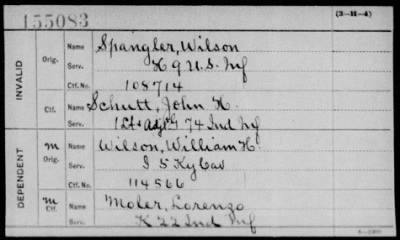 155083
(3-H-4)
INVALID
Orig. Name Spangler, Wilson
Serv. K 9 U.S. Inf
Ctf. No. 108714
Ctf. Name Schutt, John H.
Serv. 1 Lt & Adjt 174 Ind Inf
DEPENDENT
M Orig. Name Wilson, William H.
Serv. I 5 Ky Cav
Ctf. No. 114566
M Ctf. Name Moler, Lorenzo
Serv. K 22 Ind Inf